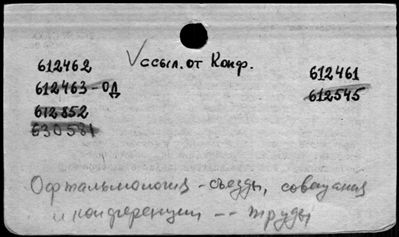 Vссыл. от Конф.
612462
612463-ОД
612852
630581
612461
612545
Офтальмология - съезды, совещания
и конференции -- труды